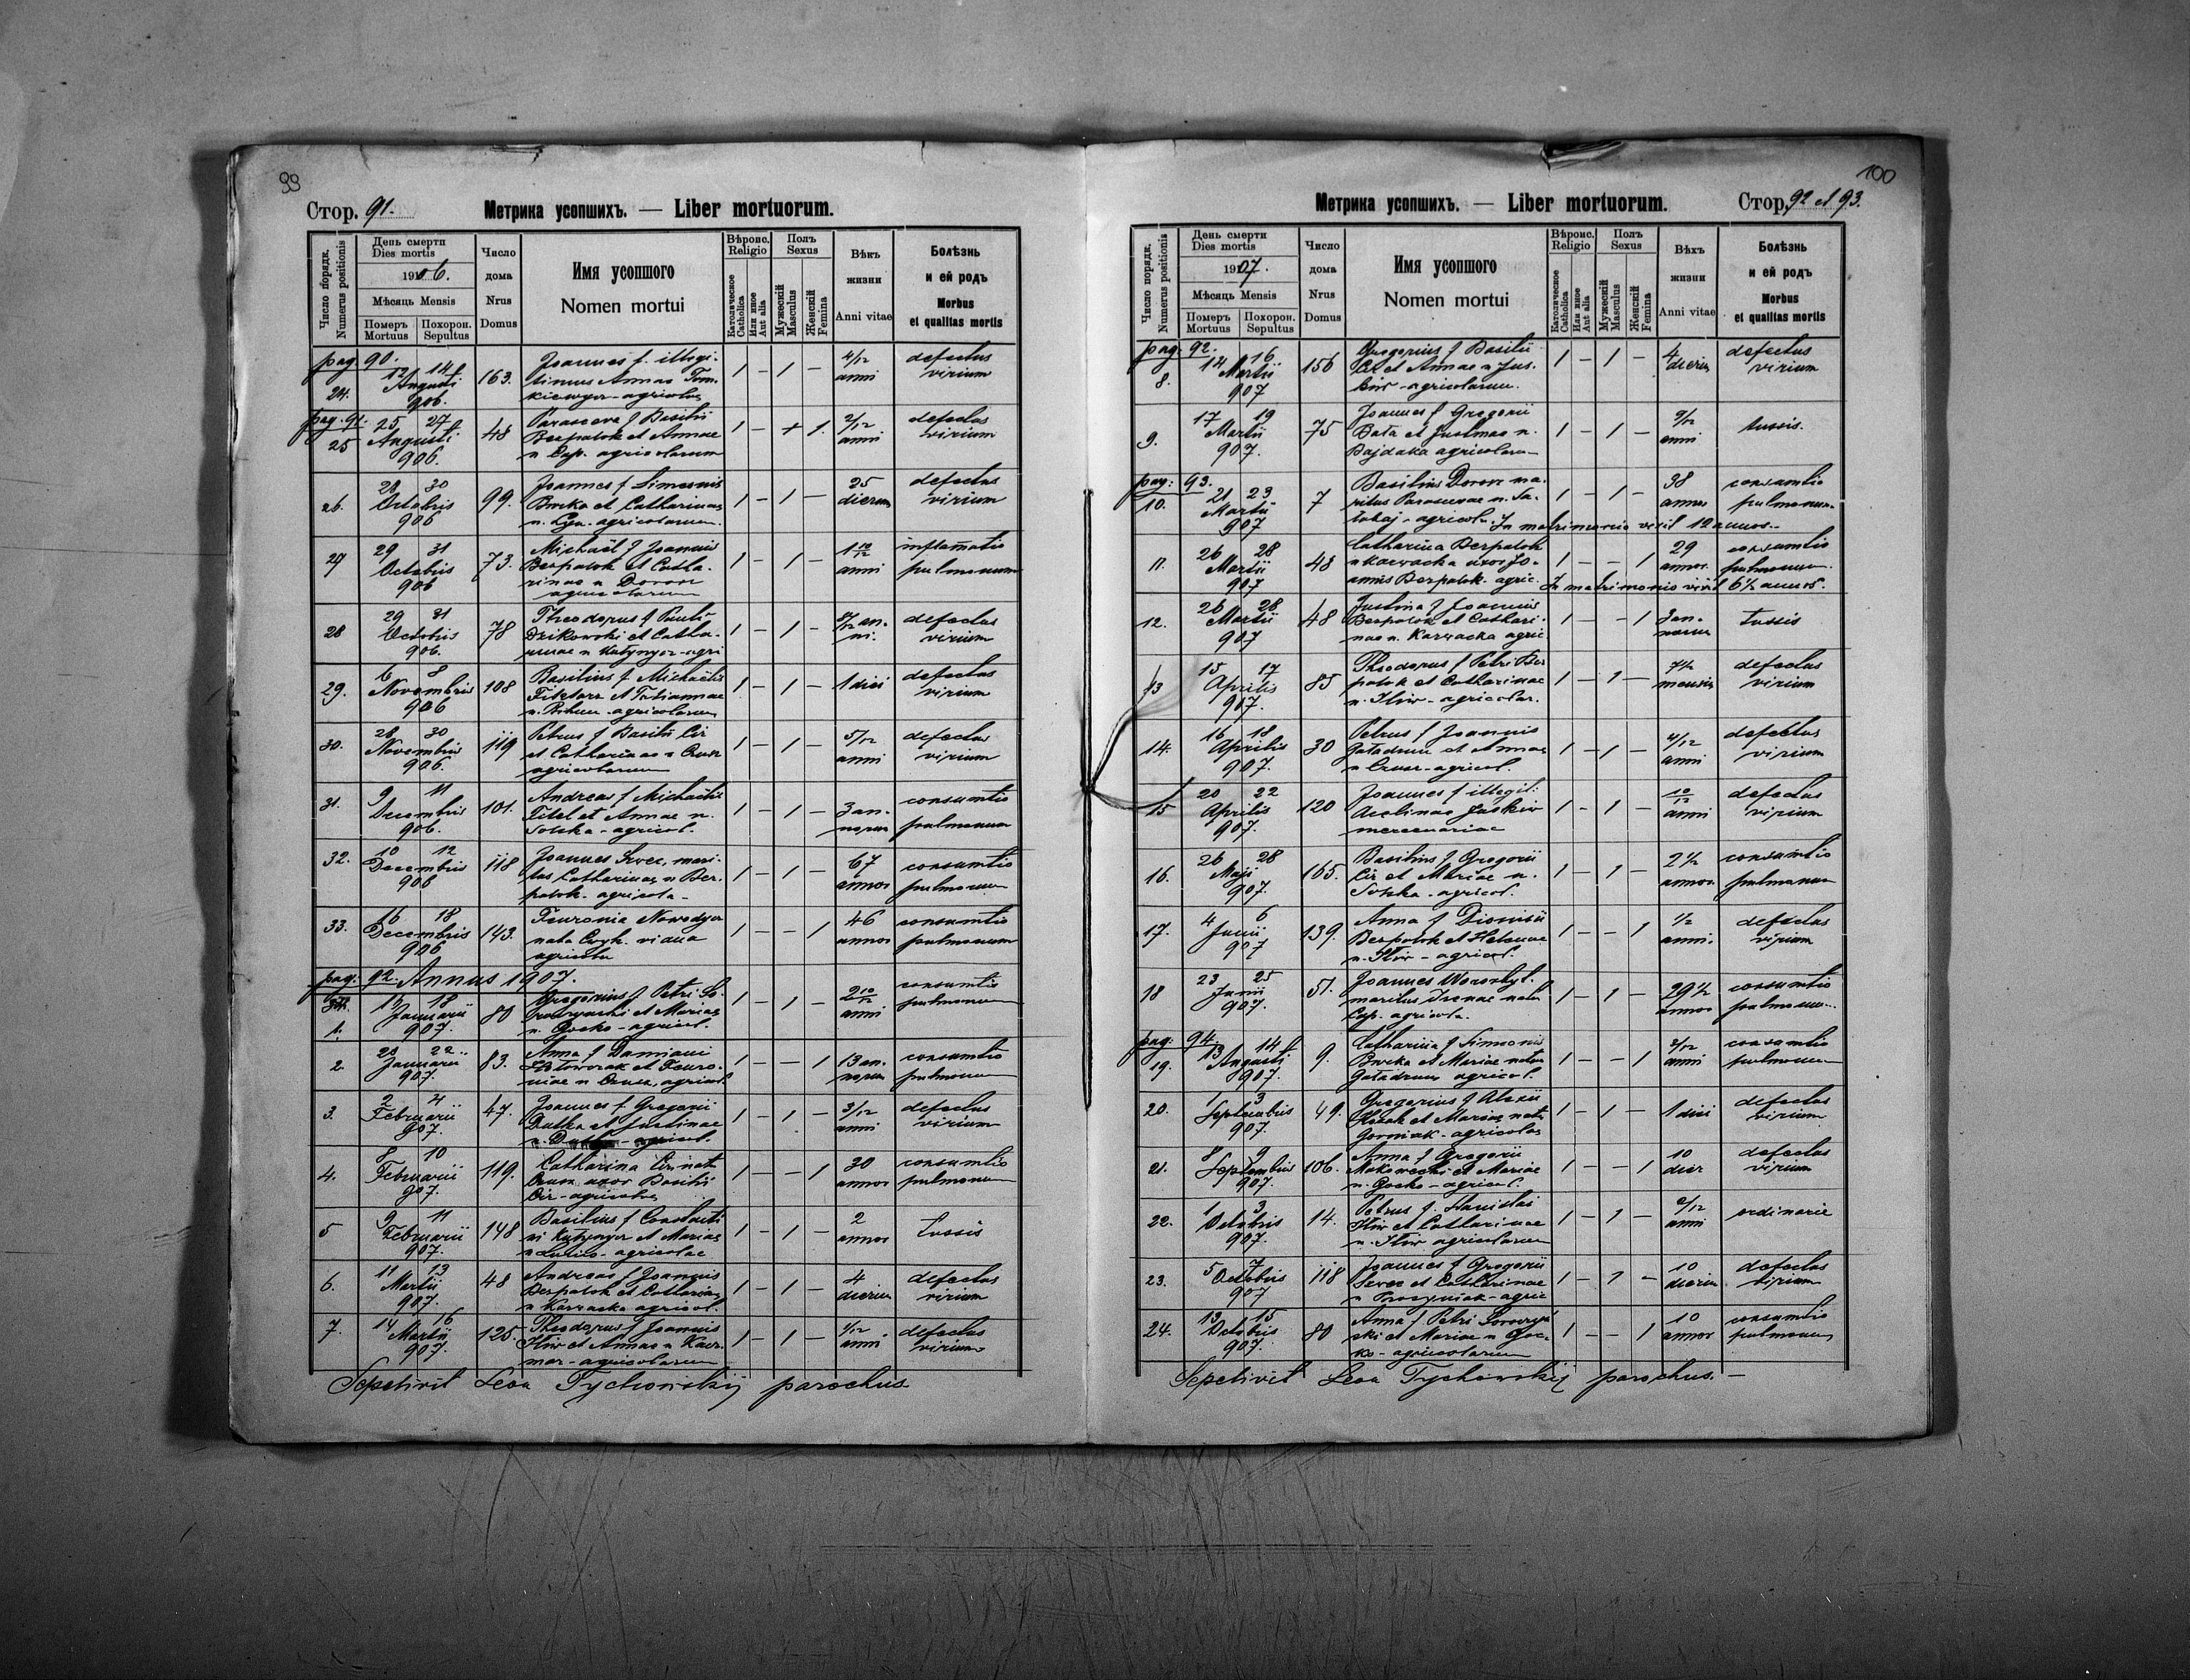 99
Стор. 91.
Метрика усопшихъ. — Liber mortuorum.
Число порядк. Numerus positionis
День смерти Dies mortis
1906.
Мѣсяць Mensis
Померъ Mortuus
Похорон. Sepultus
Число дома Nrus Domus
Имя усопшого Nomen mortui
Вѣроис. Religio
Католическое Catholica
Или иное Aut alia
Полъ Sexus
Мужескій Masculus
Женскій Femina
Вѣкъ жизни Anni vitae
Болѣзнь и ей родъ Morbus et qualitas mortis
pag. 90.
24. 12 14 Augusti 906. 163. Joannes f. illegi- 1 - 1 - 4/12 anni defectus virium
timus Annae
agricolae
pag. 91.
25 25 27 Augusti 906. 48 Parasceve f Basilii 1 - + 1. 2/12 anni defectus virium
Berpalok et Annae
n Cap. agricolarum
26. 28 30 Octobris 906 99. Joannes f Simeonis 1 - 1 - 25 dierum defectus virium
et Catharinae
n. agricolarum.
27 29 31 Octobris 906 73. Michaël f Joannis 1 - 1 - 1 10/12 anni inflamatio pulmonum
Berpalok et Catha-
rinae n Doros
agricolarum
28 29 31 Octobris 906. 78 Theodorus f Pauli 1 - 1 - anni. defectus virium
Dzikowski et Catha-
rinae n agri
29. 6 8 Novembris 906 108 Basilius f Michaëlis 1 - 1 - 1 diei defectus virium
et Tatiannae
n. agricolarum
30. 28 30 Novembris 906. 119 Petrus f Basilii Cir 1 - 1 - 5/12 anni defectus virium
et Catharinae n
agricolarum
31. 9 11 Decembris 906. 101. Andreas f Michaëlis 1 - 1 - 3 annorum consumtio pulmonum
Fitel et Annae n.
Sotska - agricol.
32. 10 12 Decembris 906 118 Joannes Szwec, mari- 1 - 1 - 67 annos consumtio pulmonum
tus Catharinae n Ber-
palok. agricola -
33. 16 18 Decembris 906 143. Feuronia Nowodyor 1 - - 1 46 annos consumtio pulmonum
nata vidua
agricola
pag: 92. Annus 1907.
1. 16 18 Januarii 907. 80 Gregorius f Petri So- 1 - 1 - 2 10/12 anni consumtio pulmonum
et Mariae
n. Gocko - agricol.
2. 20 22 Januarii 907. 83. Anna f Damiani 1 - - 1 13 annorum consumtio pulmonum
et Feuro-
niae n agricol
3. 2 4 Februarii 907. 47. Joannes f. Gregorii 1 - 1 - 3/12 anni defectus virium
Dutka et Justinae
n. agricol.
4. 8 10 Februarii 907. 119. Catharina Cir nata 1 - - 1 30 annos consumtio pulmonum
uxor Basilii
Cir - agricolae
5 9 11 Februarii 907. 148 Basilius f Constanti 1 - 1 - 2 annos tussis
ni et Mariae
agricolae
6. 11 13 Martii 907. 48 Andreas f Joannis 1 - 1 - 4 dierum defectus virium
Berpalok et Catharinae
n Karvacka agricol.
7. 14 16 Martii 907. 125. Theodorus f Joannis 1 - 1 - 1/12 anni defectus virium
Iliw et Annae n Kacz-
mar - agricolarum
Sepelivit Leon Tychowskij parochus.
100
Метрика усопшихъ. — Liber mortuorum.
Стор. 92 et 93.
Число порядк. Numerus positionis
День смерти Dies mortis
1907.
Мѣсяць Mensis
Померъ Mortuus
Похорон. Sepultus
Число дома Nrus Domus
Имя усопшого Nomen mortui
Вѣроис. Religio
Католическое Catholica
Или иное Aut alia
Полъ Sexus
Мужескій Masculus
Женскій Femina
Вѣхъ жизни Anni vitae
Болѣзнь и ей родъ Morbus et qualitas mortis
pag: 92.
8. 14 16 Martii 907 156 Gregorius f Basilii 1 - 1 - 4 dierum defectus virium
Cir et Annae n Jus-
kiw - agricolarum.
9. 17 19 Martii 907. 75 Joannes f Gregorii 1 - 1 - 9/12 anni tussis.
Bata et Justinae n.
Bajdaka agricolarum
pag: 93.
10. 21 23 Martii 907 7 Basilius Doros ma- 1 - 1 - 38 annos consumtio pulmonum
ritus Parascevae n. Sa-
łabaj - agricol. In matrimonio vixit 12 annos.-
11. 26 28 Martii 907 48 Catharina Berpalok 1 - - 1 29 annos. consumtio pulmonum.
n Karvacka uxor Jo-
annis Berpalok - agric. In matrimonio vixit 6 1/2 annos.
12. 26 28 Martii 907 48 Justina f Joannis 1 - - 1 3 annorum tussis
Berpalok et Cathari-
nae n. Karvacka agric
13 15 17 Aprilis 907. 85 Theodorus f Petri Ber 1 - 1 - 7 1/2 mensis defectus virium
palok et Catharinae
n. Iliw - agricolar.
14. 16 18 Aprilis 907. 30 Petrus f Joannis 1 - 1 - 4/12 anni defectus virium
Gaładrun et Annae
n agricol.
15 20 22 Aprilis 907. 120 Joannes f illegit: 1 - 1 - 10/12 anni defectus virium
Acelinae Juskiw
mercenariae
16. 26 28 Maji 907. 165. Basilius f Gregorii 1 - 1 - 2 1/2 annos. consumtio pulmonum
Cir et Mariae n.
Sotska - agricol.
17. 4 6 Junii 907 139. Anna f Dionisii 1 - - 1 1/2 anni. defectus virium
Berpalok et Helenae
n. Iliw - agricol.
18 23 25 Junii 907. 51. Joannes Woronkyl. 1 - 1 - 29 1/2 annos consumtio pulmonum.
maritus Irenae nata
Cap. agricola.
pag: 94.
19. 13 14 Augusti 907. 9. Catharina f Simeonis 1 - - 1 2/12 anni consumtio pulmonum
et Mariae nata
Gaładrun agricol.
20. 1 3 Septembris 907. 49. Gregorius f Alexii 1 - 1 - 1 diei defectus virium
et Mariae nata
Gorniak - agricolae
21. 8 9 Septembris 907. 106. Anna f Gregorii 1 - - 1 10 dier defectus virium
Makowecki et Mariae
n. Gocko - agricol.
22. 1 3 Octobris 907. 14. Petrus f. Stanislai 1 - 1 - 2/12 anni ordinarie
Iliw et Catharinae
n. Iliw agricolarum
23. 5 7 Octobris 907 118 Joannes f Gregorii 1 - 1 - 10 dierum defectus virium
Szwec et Catharinae
n agric
24. 13 15 Octobris 907. 80 Anna f Petri 1 - - 1 10 annos consumtio pulmonum
ski et Mariae n Goc-
ko - agricolarum
Sepelivit Leon Tychowskij parochus. -